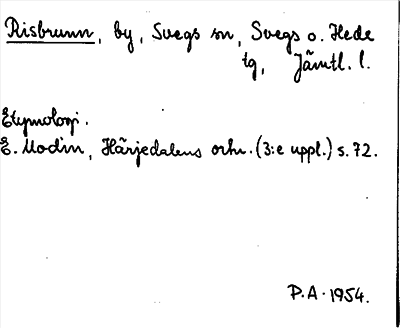 Risbrunn, by, Svegs sn, Svegs o. Hede
tg, Jämtl. l.
Etymologi.
E. Modin, Härjedalens ortn. (3:e uppl.) s. 72.
P.A. 1954.